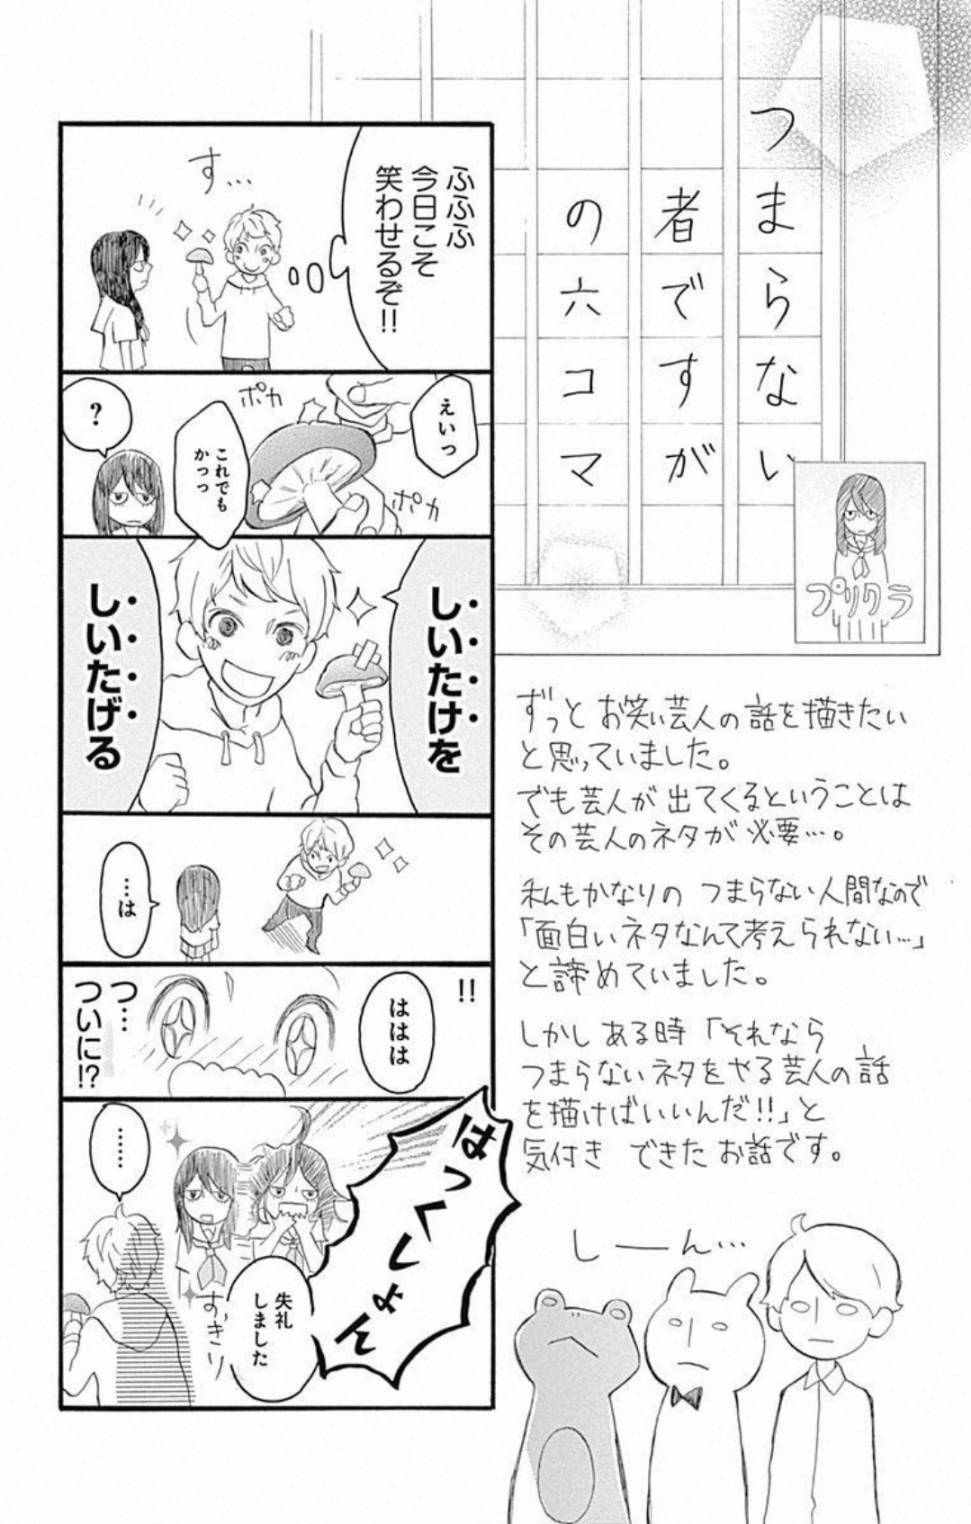 つまらない
者ですが
の六コマ
プリクラ
ふふふ
今日こそ
笑わせるぞ!!
す…
えいっ
ポカ
ポカ
これでも
かっっ
?
しいたけを
しいたげる
…は
!!
ははは
つ…
ついに!?
はっくしょん
失礼
しました
すっきり
……
ずっとお笑い芸人の話を描きたい
と思っていました。
でも芸人が出てくるということは
その芸人のネタが必要…。
私もかなりの つまらない人間なので
「面白いネタなんて考えられない…」
と諦めていました。
しかしある時「それなら
つまらないネタをやる芸人の話
を描けばいいんだ!!」と
気付き できたお話です。
しーん…